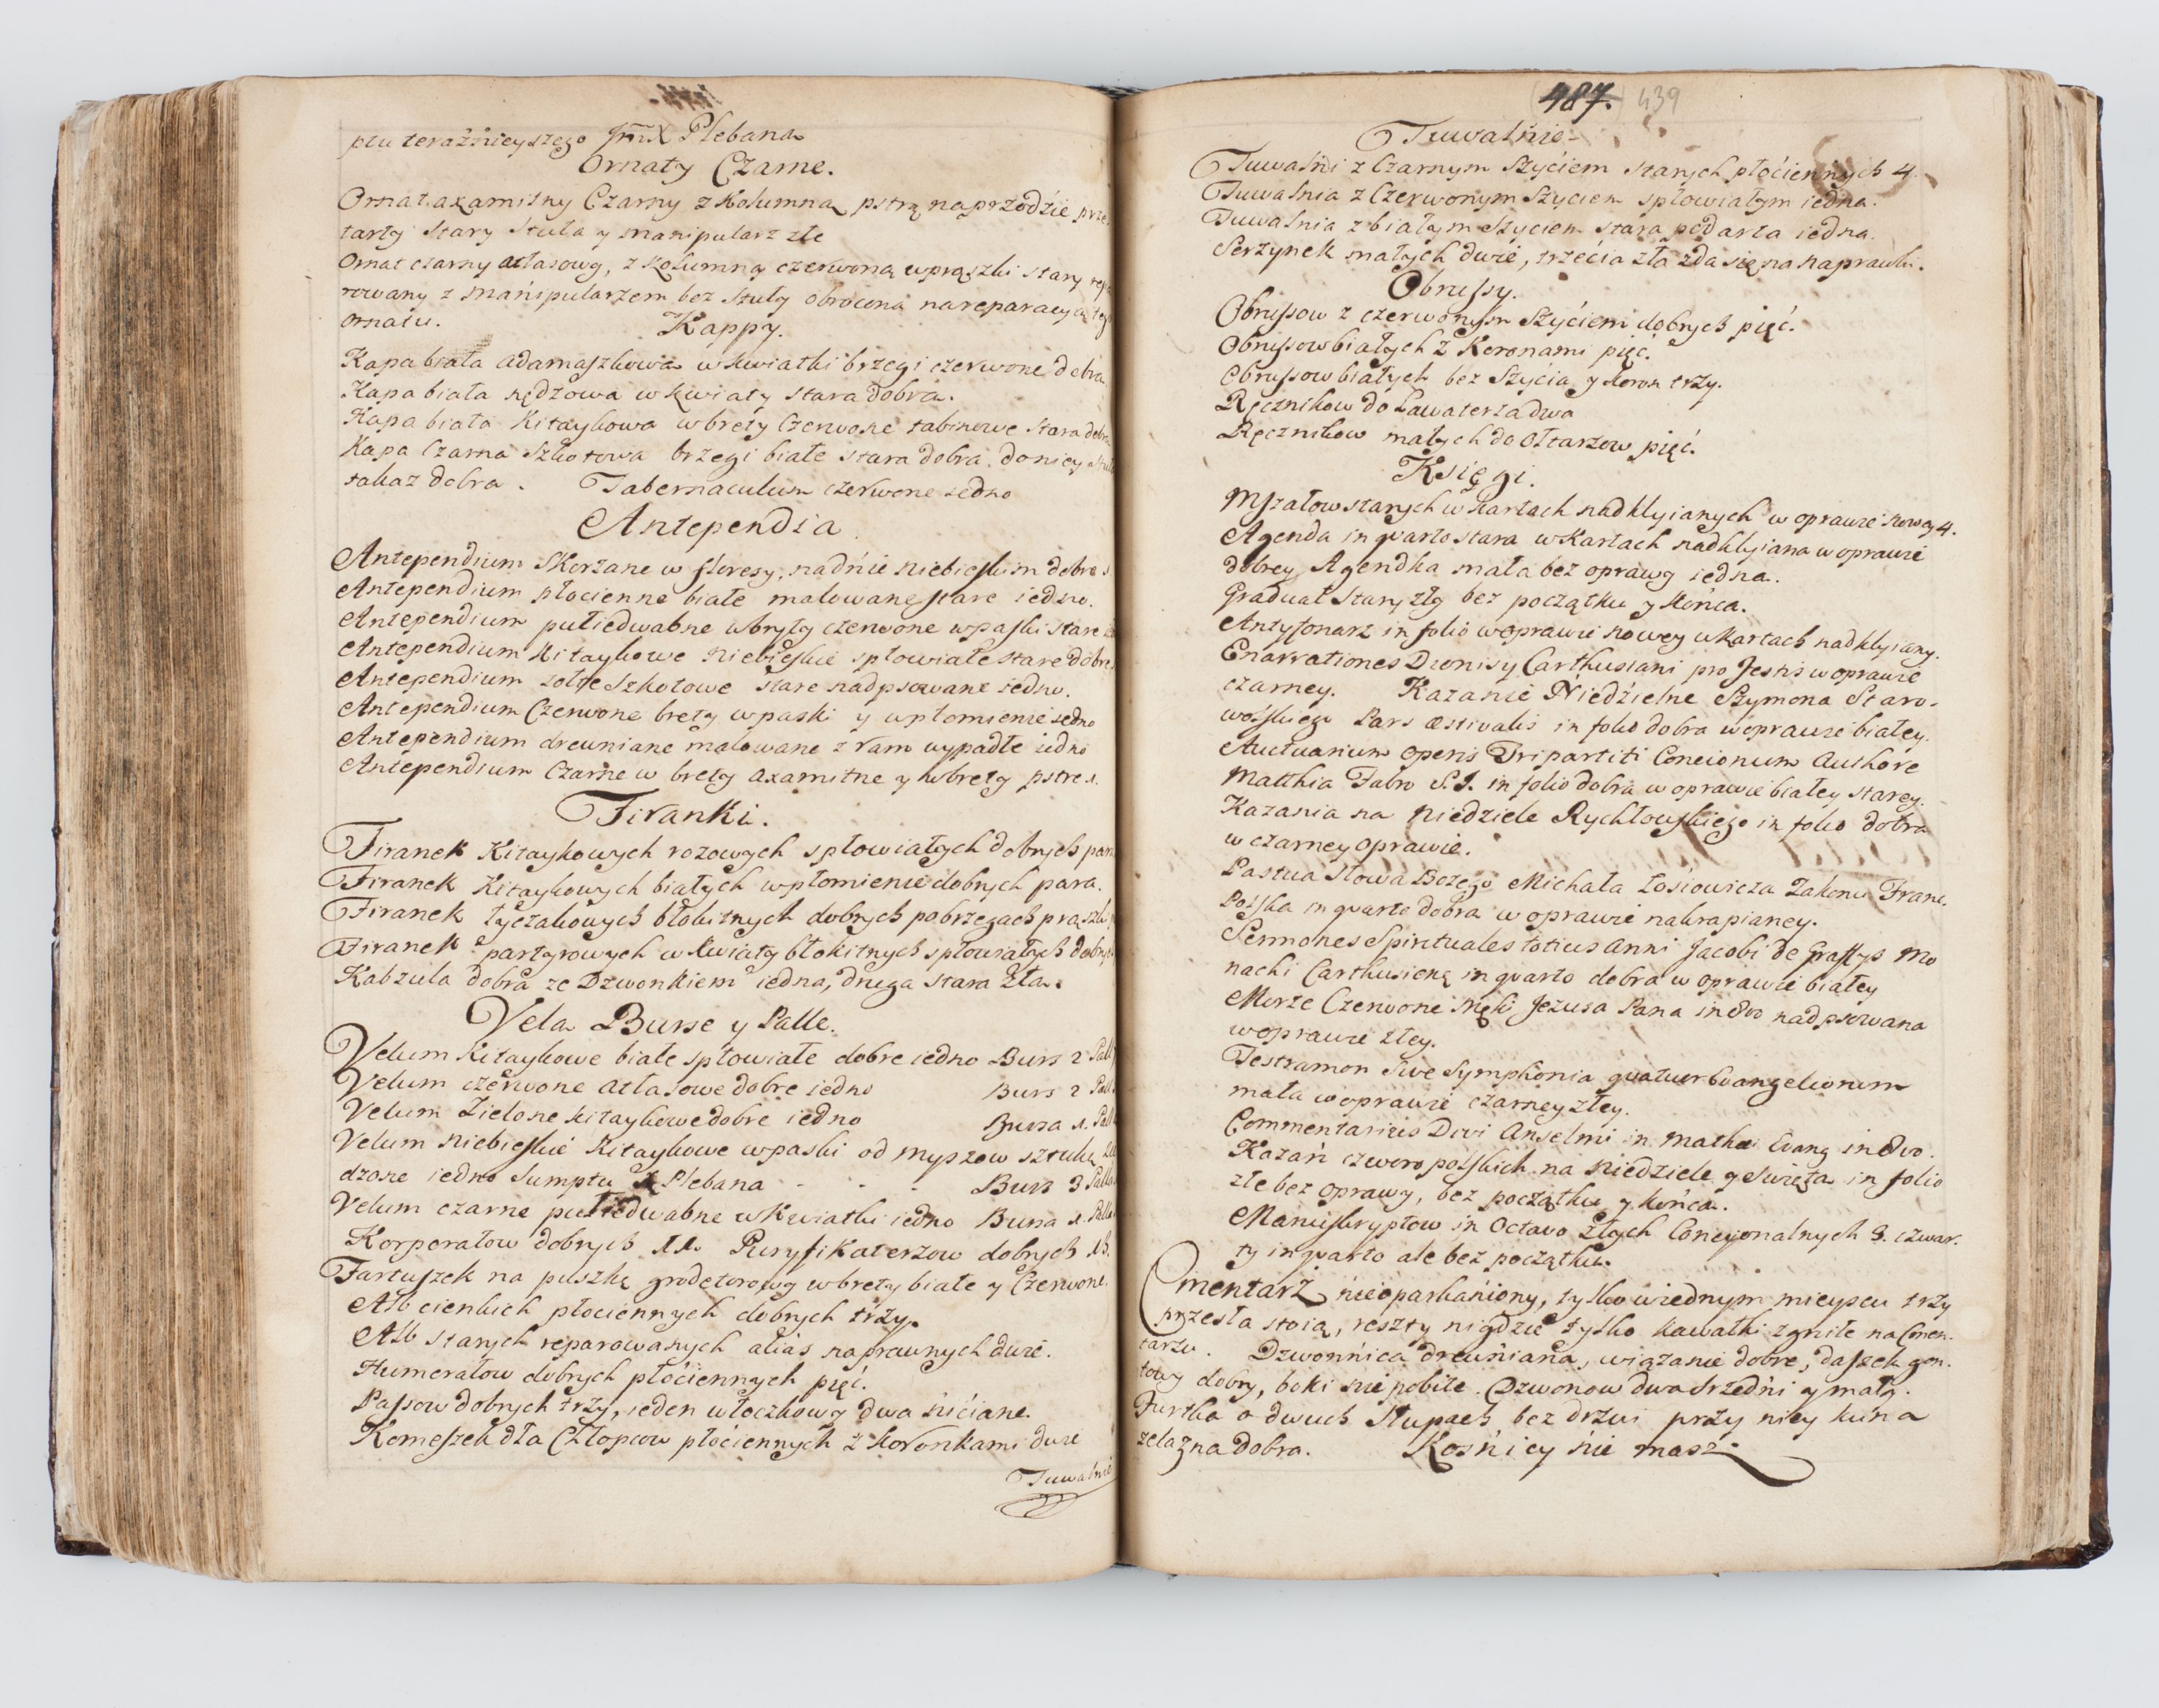 ptu teraźnieyszego JmX Plebana
Ornaty Czarne.
Ornat axamitny Czarny z Kolumną pstrą naprzodzie prze
tarty Stary Stuła y manipularz złe
Ornat czarny atłasowy, z kolumną czerwoną wprążki stary repa
rowany z manipularzem bez stuły obrocona nareparacyą tego
ornatu.
Kappy.
Kapa biała adamaszkowa w kwiatki brzegi czerwone dobra
Kapa biała rędzowa w kwiaty stara dobra.
Kapa biała Kitaykowa wbrety Czerwone tabinowe Stara dobra
Kapa Czarna Szkotowa brzegi białe stara dobra. do niey stuła
takaz dobra. Tabernaculum czerwone iedno
Antependia
Antependium Skorzane w floresy, nadnie niebieskim dobre 1
Antependium płocienne białe malowane stare iedno.
Antependium pułiedwabne wbryty czerwone wpaski stare
Antependium kitaykowe Niebieskie spłowiałe stare dobre
Antependium zołte Szkotowe stare nadpsowane iedno.
Antependium Czerwone brety wpaski y wpłomienie iedno
Antependium drewniane malowane z ram wypadłe iedno
Antependium Czarne w brety axamitne y wbrety pstre 1.
Firanki.
Firanek Kitaykowych rozowych spłowiałych dobrych para
Firanek Kitaykowych białych wpłomienie dobrych para.
Firanek łyczakowych błokitnych dobrych pobrzegach prążki
Firanek partyrowych w kwiaty błokitnych spłowiałych dobrych
Kabzula dobra ze Dzwonkiem iedna, druga stara zła.
Vela Burse y Palle.
Velum Kitaykowe białe spłowiałe dobre iedno Burs 2 Pall
Velum czerwone atłasowe dobre iedno Burs 2 Pall
Velum Zielone kitaykowe dobre iedno Bursa 1. Pall
Velum niebieskie Kitaykowe wpaski od myszow sztukę
dzone iedno Sumptu X Plebana - - - Burs 3 Palla
Velum czarne pułiedwabne w Kwiatki iedno Bursa 1. Palla
Korporałow dobrych 11. Puryfikaterzow dobrych 13.
Fartuszek na puszkę grodetorowy wbrety białe y Czerwone.
Alb cienkich płociennych dobrych trzy.
Alb starych reparowanych alias naprawnych dwie.
Humerałow dobrych płóciennych pięć.
Passow dobrych trzy, ieden włoczkowy dwa niciane.
Komeszek dla Chłopcow płóciennych z koronkami dwie
Tuwalnie
487. 439
Tuwalnie
Tuwalni z Czarnym Szyciem starych płóciennych 4.
Tuwalnia z Czerwonym Szyciem spłowiałym iedna.
Tuwalnia z białym Szyciem stara podarta iedna.
Serzynek małych dwie, trzecia zła zda się na naprawki.
Obrussy.
Obrussow z czerwonym Szyciem dobrych pięć.
Obrussow białych z Koronami pięć.
Obrussow białych bez Szycia y koron trzy.
Ręcznikow do Lawaterza dwa
Ręcznikow małych do Ołtarzow pięć.
Księgi.
Mszałow starych w kartach nadklyianych w oprawie nowey 4.
Agenda in quarto stara w Kartach nadklyiana w oprawie
dobrey Agendka mała bez oprawy iedna.
Graduał Stary zły bez początku y końca.
Antyfonarz in folio w oprawie nowey w kartach nadklyiany.
Enarrationes Dionisy Carthusiani pro Festis w oprawie
czarney. Kazanie Niedzielne Szymona Staro-
wolskiego Pars æstivalis in folio dobra w oprawie białey.
Auctuarium operis Tripartiti Concionum Authore
Matthia Fabro S.J. in folio dobra w oprawie białey starey.
Kazania na Niedziele Rychłowskiego in folio dobra
w czarney oprawie.
Pastwa Słowa Bożego Michała Łosiowicza Zakonu Franc.
Polska in quarto dobra w oprawie nakrapianey.
Sermones Spirituales totius anni Jacobi de Grassys Mo
nachi Carthusiens in quarto dobra w oprawie białey
Morze Czerwone Męki Jezusa Pana in 8vo nadpsowana
w oprawie złey.
Testramon Sive Symphonia quatuor Evangeliorum
mała w oprawie czarney złey.
Commentarius Divi Anselmi in Mathæ Evang in 8vo.
Kazań czworo polskich na Niedziele y Swięta in folio
złe bez oprawy, bez początku y końca.
Manuskryptow in Octavo złych Concyonalnych 3. czwar.
ty in quarto ale bez początku.
Cmentarz nieoparkaniony, tylko w iednym mieyscu trzy
przesła stoią, reszty nigdzie tylko kawałki zgniłe na Cmen.
tarzu. Dzwonnica drewniana, wiązanie dobre, daszek gon.
towy dobry, boki nie pobite. Dzwonow dwa srzedni y mały.
Furtka o dwuch Słupach bez drzwi przy niey kuna
zelazna dobra. Kosnicy nie masz.